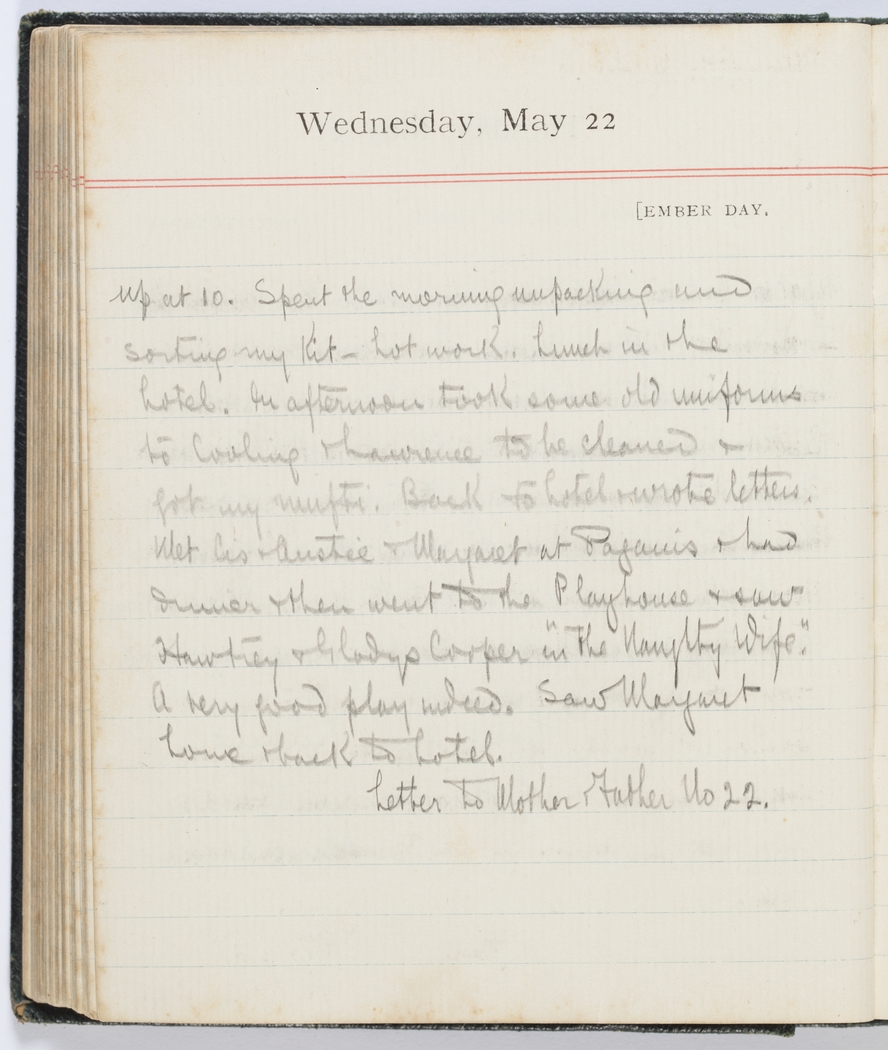 Wednesday, May 22
[EMBER DAY.
Up at 10. Spent the morning unpacking and
sorting my Kit - hot work. Lunch in the
hotel. In afternoon took some old uniforms
to Cooling & Lawrence to be cleaned &
got my mufti. Back to hotel & wrote letters.
Met Cis & Austie & Margaret at Paganis & had
dinner & then went to the Playhouse & saw
Hawtrey & Gladys Cooper "in The Naughty Wife".
A very good play indeed. Saw Margaret
home & back to hotel.
Letter to Mother & Father No 22.